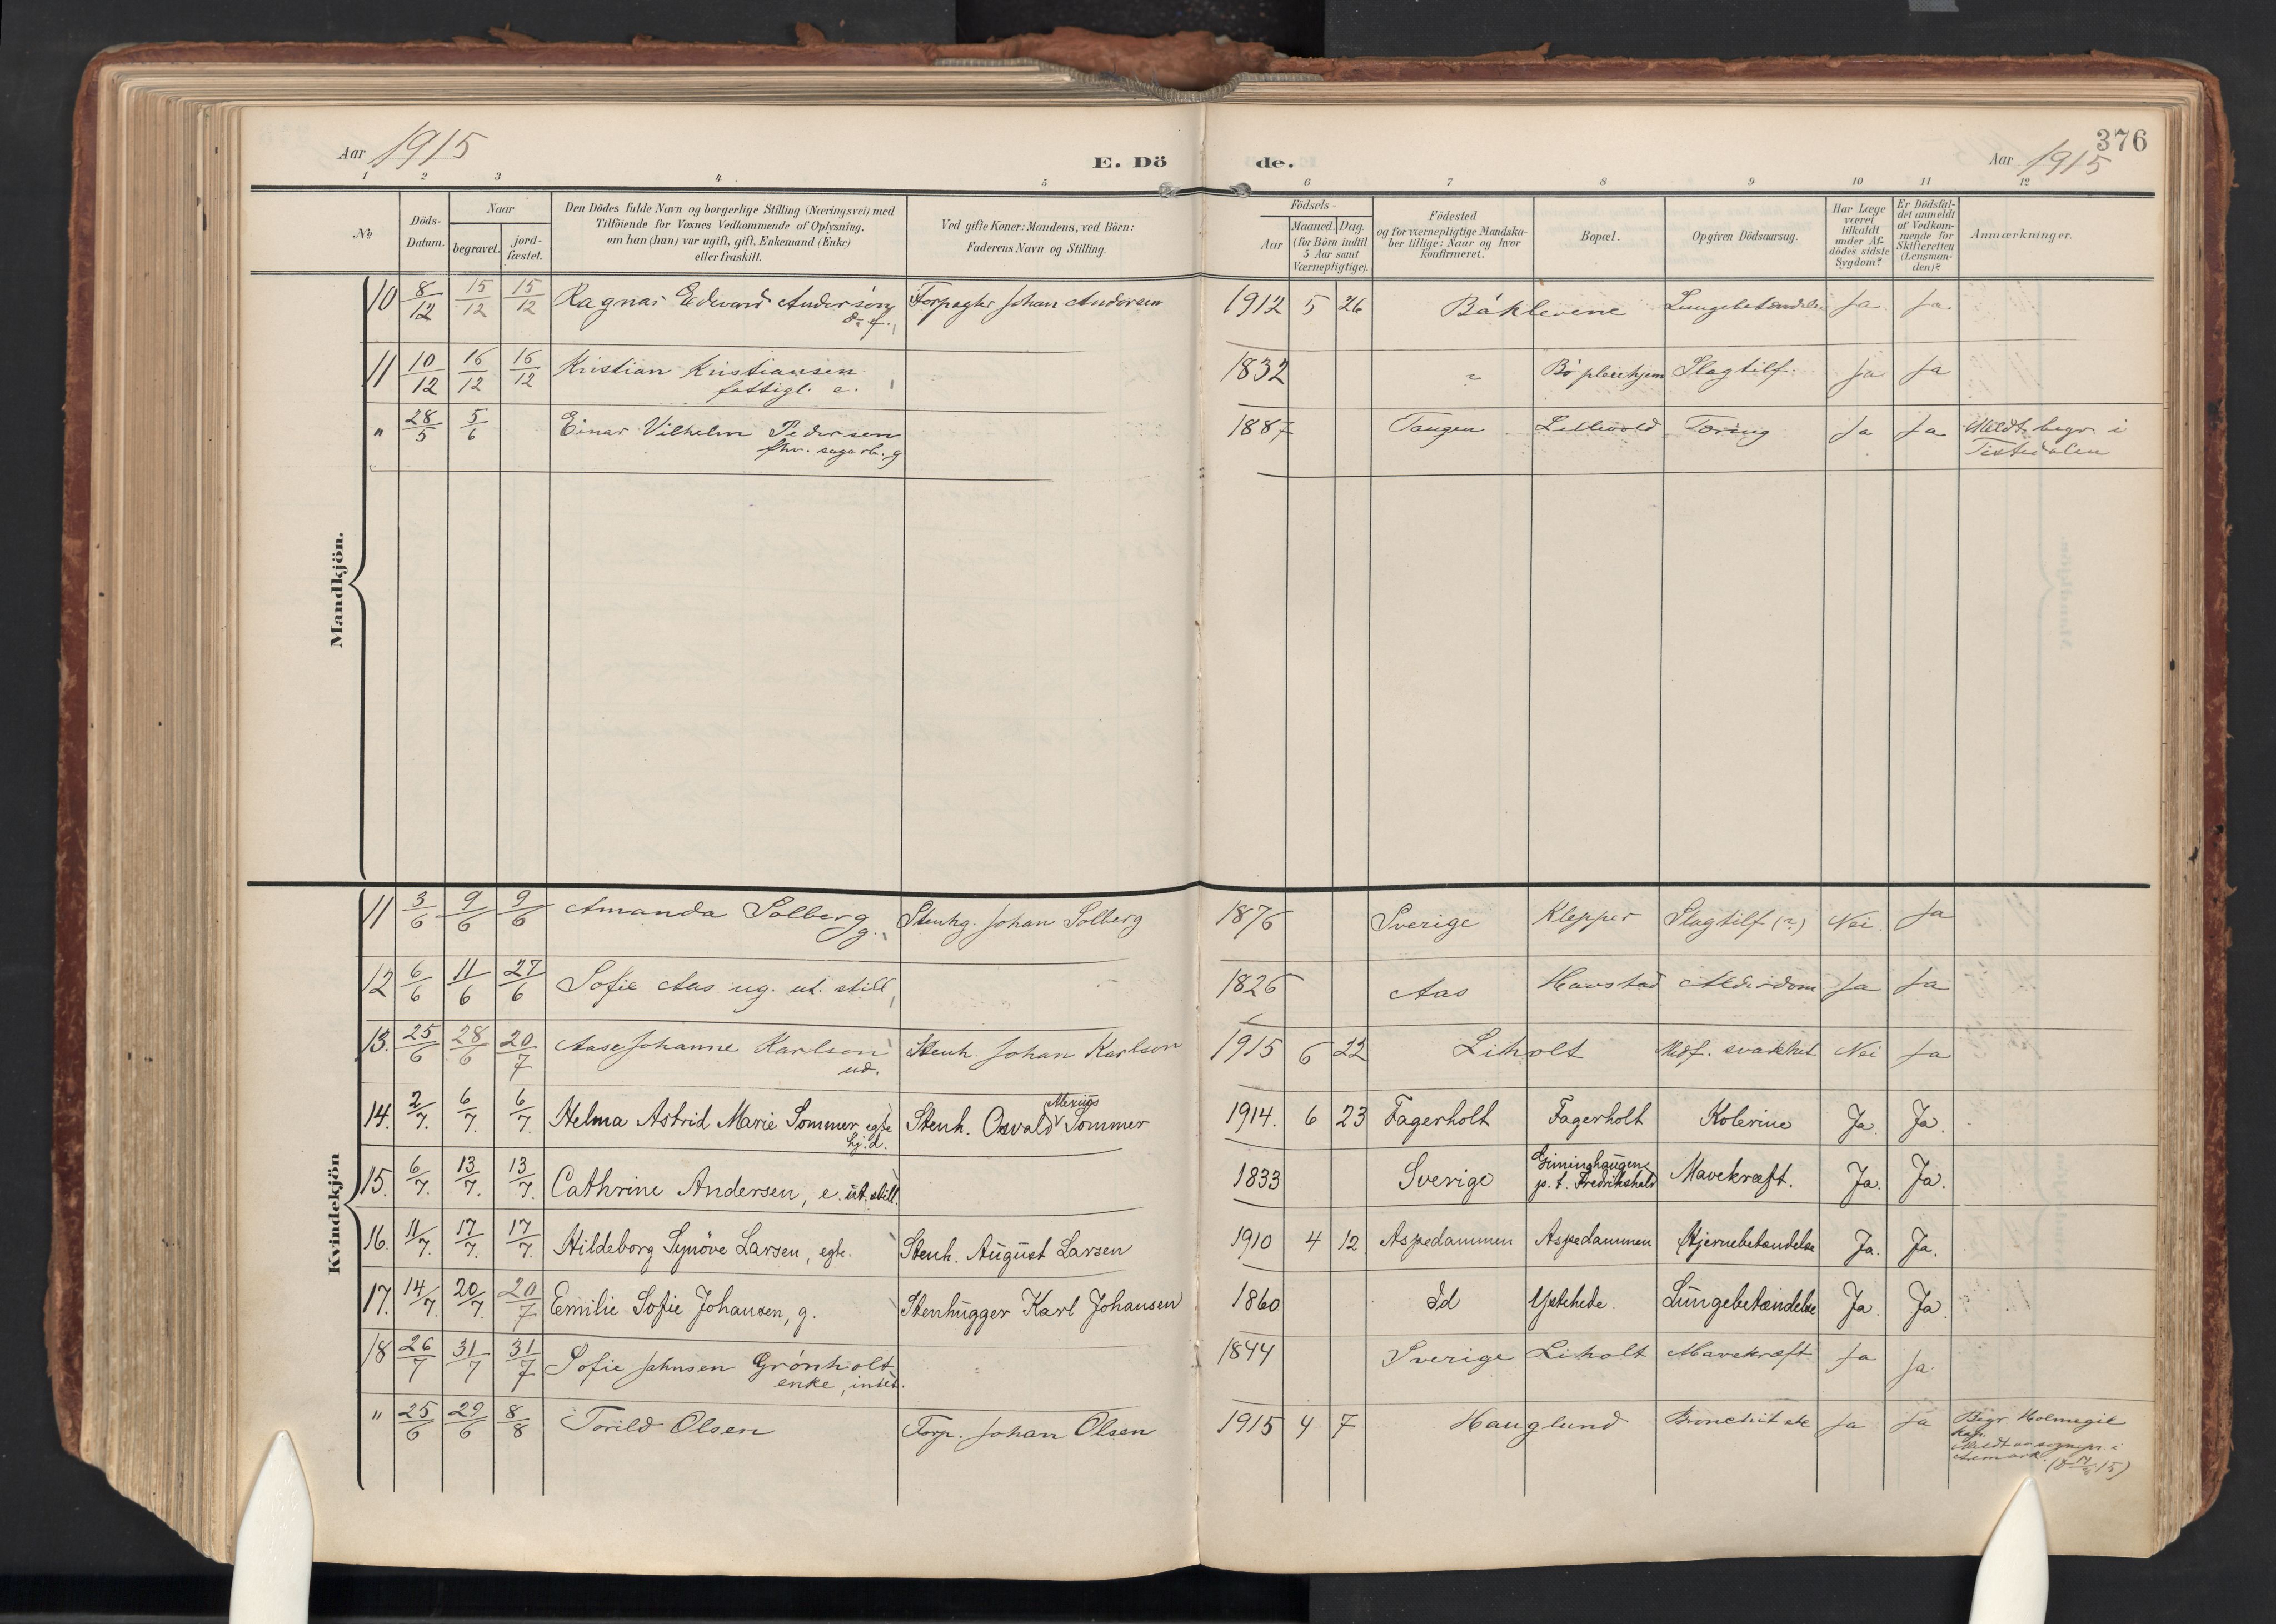 Aar 1915
E. Dö de.
Aar 1915
376
1 2 3 4 5 6 7 8 9 10 11 12
No
Döds-Datum.
Naar
begravet.
jord-fæstet.
Den Dödes fulde Navn og borgerlige Stilling (Næringsvei) med
Tilföiende for Voxnes Vedkommende af Oplysning,
om han (hun) var ugift, gift, Enkemand (Enke)
eller fraskilt.
Ved gifte Koner: Mandens, ved Börn:
Faderens Navn og Stilling.
Födsels-
Aar
Maaned. Dag.
(for Börn indtil
5 Aar samt
Værnepligtige).
Födested
og for værnepligtige Mandska-
ber tillige: Naar og hvor
konfirmeret.
Bopæl.
Opgiven Dödsaarsag.
Har Læge
været
tilkaldt
under Af-
dödes sidste
Sygdom?
Er Dödsfal-
det anmeldt
af Vedkom-
mende for
Skifteretten
(Lensman-
den)?
Anmærkninger.
Mandkjön.
10 8/12 15/12 15/12 Ragnar Edvard Anderson Forpagter Johan Andersen 1912 5 26 Båklevene Lungebetændelse Ja Ja
11 10/12 16/12 16/12 Kristian Kristiansen 1832 Bø pleiehjem Slagtilf. Ja Ja
fattigl. e.
" 28/5 5/6 Einar Vilhelm Pedersen 1887 Tangen Lillevold Tæring Ja Ja Meldt. begr. i
fhv. sagarb. g Tistedalen
Kvindekjön
11 3/6 9/6 9/6 Amanda Solberg g. Stenhg. Johan Solberg 1876 Sverige Klepper Slagtilf (?) Nei Ja
12 6/6 11/6 27/6 Sofie Aas ug. ut. still 1826 Aas Havstad Alderdom Ja Ja
13. 25/6 28/6 20/7 Aase Johanne Karlson Stenh Johan Karlson 1915 6 22 Liholt Medf. svakhet Nei Ja
ud.
14. 2/7. 6/7. 6/7. Helma Astrid Marie Sommer egte Stenh. Osvald Alexius Sommer 1914. 6 23 Fagerholt Fagerholt Kolerine Ja. Ja.
hj. d.
15. 6/7. 13/7. 13/7. Cathrine Andersen, e. ut. still. 1833 Sverige Giminghaugene p. t. Fredrikshald Mavekræft. Ja. Ja.
16. 11/7. 17/7. 17/7. Hildeborg Synöve Larsen, egte. Stenh. August Larsen 1910 4 12 Aspedammen Aspedammen Hjernebetændelse Ja. Ja.
17. 14/7. 20/7. 20/7 Emilie Sofie Johansen, g. Stenhugger Karl Johansen 1860 Id Ystehede. Lungebetændelse Ja. Ja.
18 26/7 31/7 31/7 Sofie Johnsen Grönholt 1844 Sverige Liholt Mavekræft Ja Ja.
enke, intet.
" 25/6 29/6 8/8 Torild Olsen Forp. Johan Olsen 1915 4 7 Hauglund Bronchit Ja Ja Begr. Holmegil
Kap.
Meldt sognepr. i
Aremark.